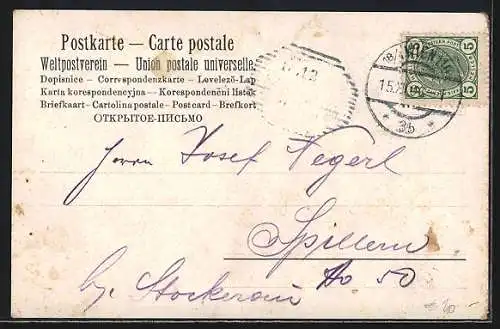 Postkarte — Carte postale
Weltpostverein — Union postale universelle
Dopisnice - Correspondenzkarte - Levelező-Lap
Karta korespondencyjna - Korespondenční lístek
Briefkaart - Cartolina postale - Postcard - Brefkort
ОТКРЫТОЕ-ПИСЬМО
5 5
5 5
* 3b *
Herrn Josef Negerl
Spillern
No 50
by Stockerau